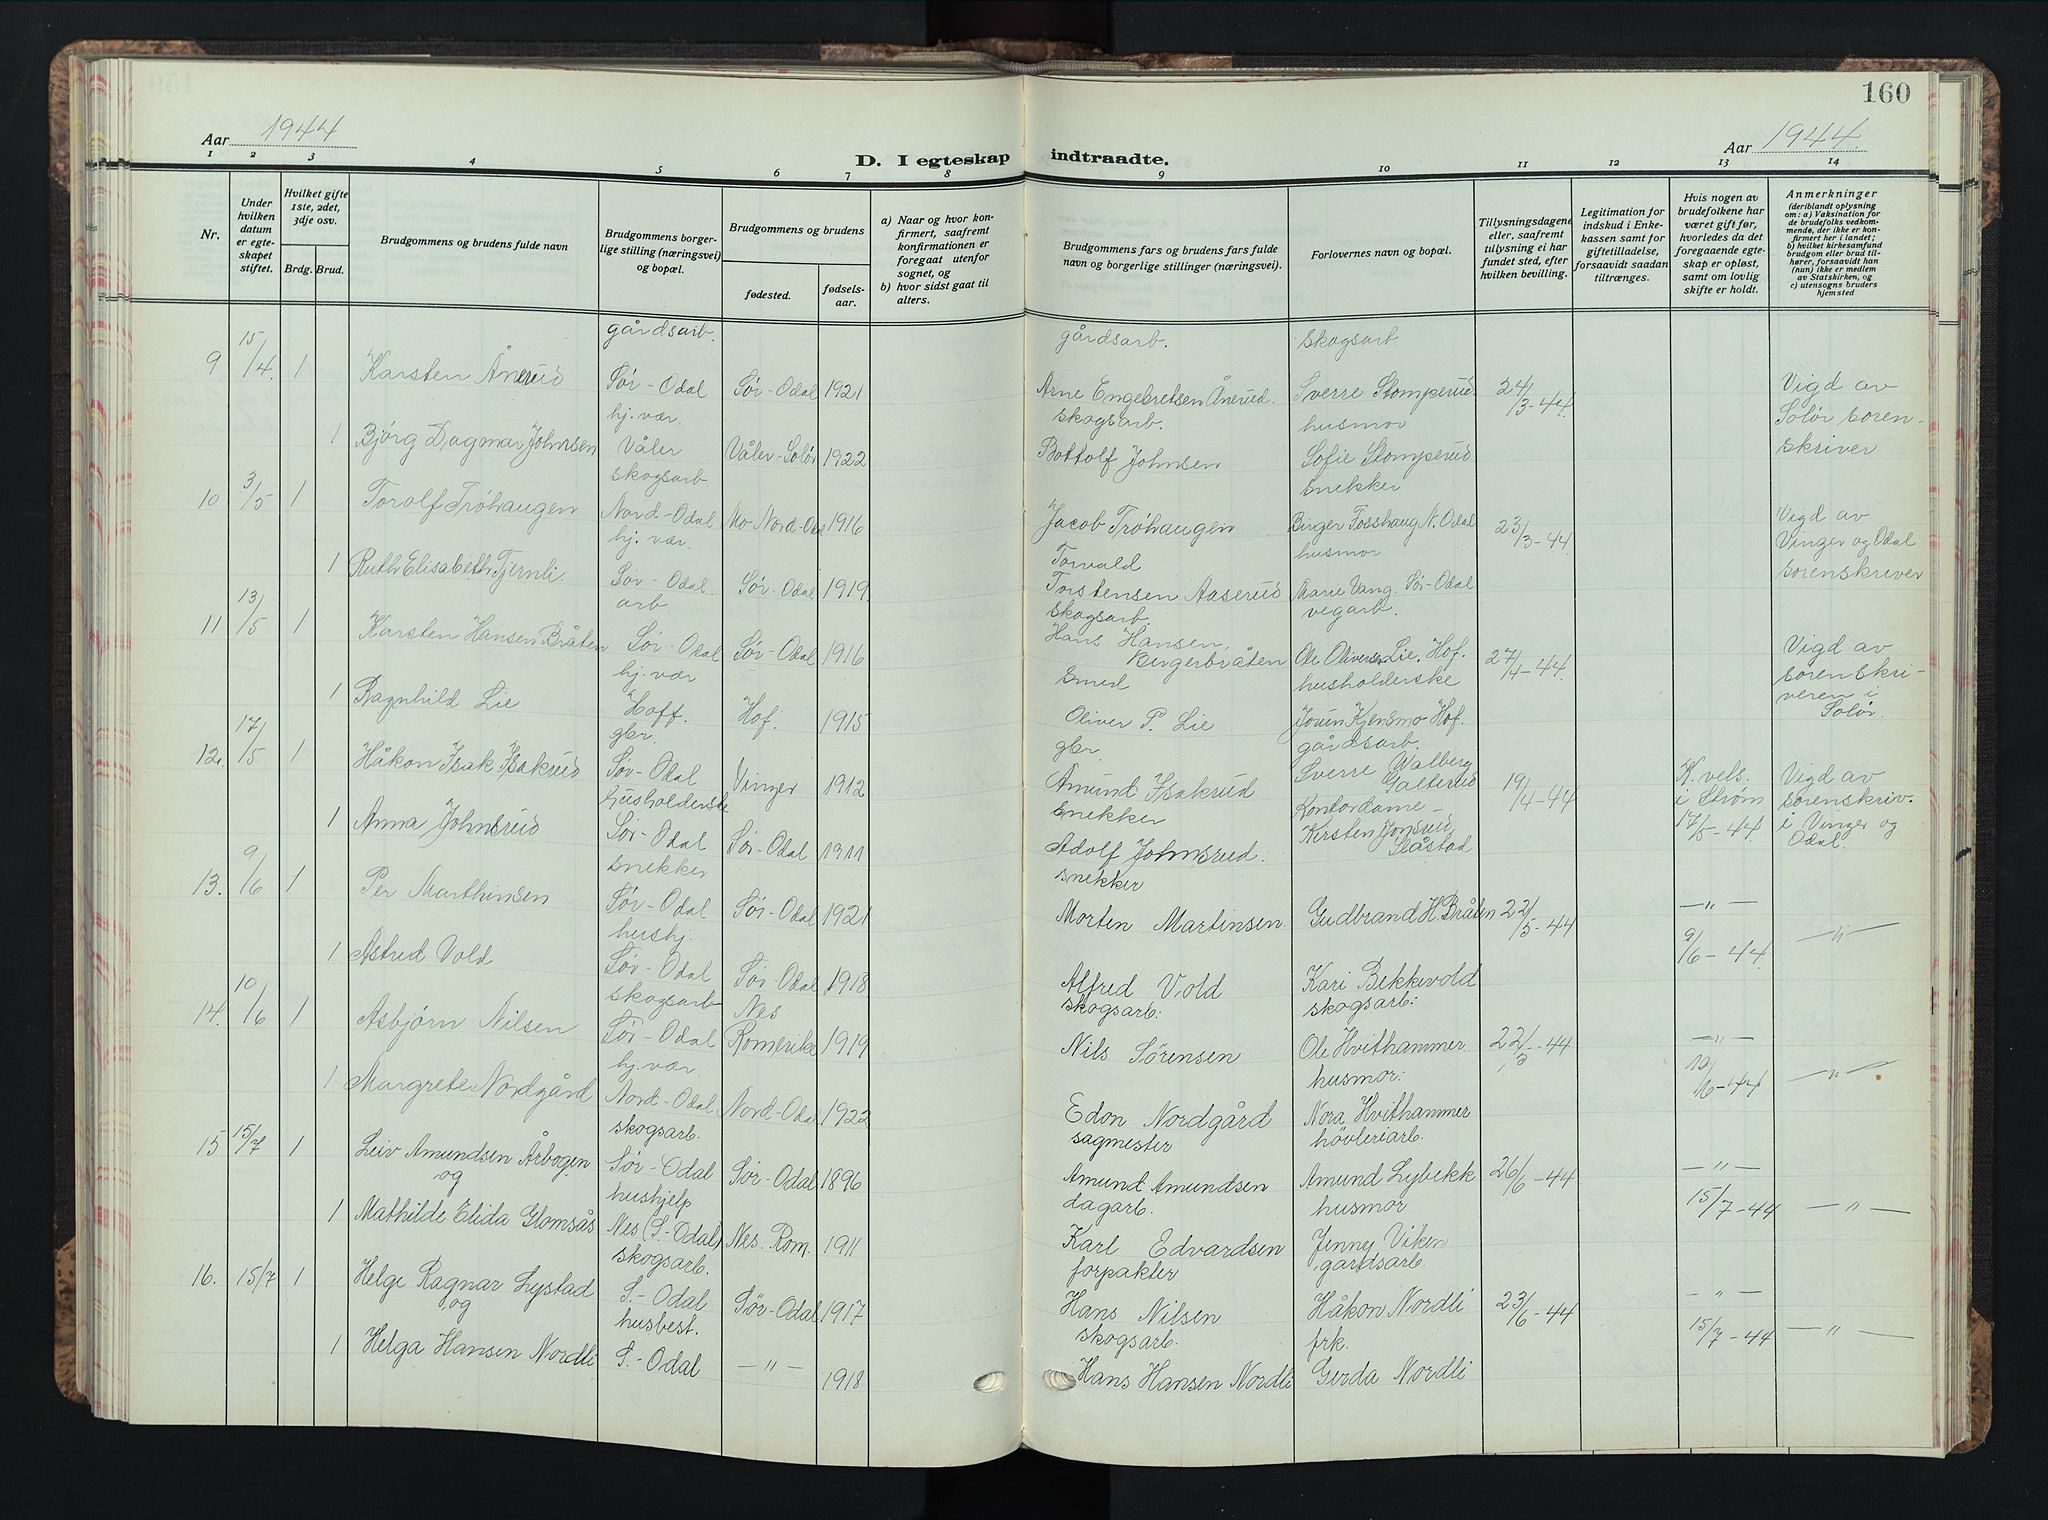 160
Aar 1944
D. I egteskap indtraadte.
Aar 1944.
1 2 3 4 5 6 7 8 9 10 11 12 13 14
Nr.
Under hvilken datum er egteskapet stiftet.
Hvilket gifte 1ste, 2det, 3dje osv.
Brdg. Brud.
Brudgommens og brudens fulde navn
Brudgommens borgerlige stilling (næringsvei) og bopæl.
Brudgommens og brudens
fødested.
fødselsaar.
a) Naar og hvor konfirmert, saafremt konfirmationen er foregaat utenfor sognet, og
b) hvor sidst gaat til alters.
Brudgommens fars og brudens fars fulde navn og borgerlige stillinger (næringsvei).
Forlovernes navn og bopæl.
Tillysningsdagene eller, saafremt tillysning ei har fundet sted, efter hvilken bevilling.
Legitimation for indskud i Enkekassen samt for giftetilladelse, forsaavidt saadan tiltrænges.
Hvis nogen av brudefolkene har været gift før, hvorledes da det foregaaende egteskap er opløst, samt om lovlig skifte er holdt.
Anmerkninger (deriblandt oplysning om: a) Vaksination for de brudefolks vedkommende, der ikke er konfirmert her i landet; b) hvilket kirkesamfund brudgom eller brud tilhører, forsaavidt han (hun) ikke er medlem av Statskirken, og c) utensogns bruders hjemsted
gårdsarb. gårdsarb. skogsarb
9 15/4. 1 Karsten Ånerud Sør-Odal Sør-Odal 1921 Arne Engebretsen Ånerud. Sverre Stomperud 24/3-44. Vigd av Solør sorenskriver
hj. vær. skogsarb. husmor
1 Bjørg Dagmar Johnsen Våler Våler-Solør 1922 Bottolf Johnsen Sofie Stomperud
skogsarb. snekker
10 3/5 1 Torolf Trøhaugen Nord-Odal Mo Nord-Odal 1916 Jacob Trøhaugen Birger Fosshaug N. Odal 23/3-44. Vigd av Vinger og Odal sorenskriver
hj. vær. husmor
1 Ruth Elisabeth Tjernli. Sør-Odal. Sør-Odal 1919. Torvald Torstensen Aaserud Marie Vang. Sør-Odal
arb. skogsarb. vegarb.
11 13/5 1 Karsten Hansen Bråten Sør-Odal Sør-Odal 1916 Hans Hansen, Bergerbråten Ole Oliversen Lie, Hof. 27/4-44. Vigd av sorenskriveren i Solør.
hj. vær smed husholderske
1 Ragnhild Lie Hoff. Hof. 1915 Oliver P. Lie Kjensmo Hof.
gbr. gbr. gårdsarb.
12. 17/5 1 Håkon Isak Isakrud Sør-Odal Vinger 1912 Amund Isakrud Sverre Walberg Galterud 19/4-44 K. vels. i Strøm 17/5-44. Vigd av sorenskriv. i Vinger og Odal.
husholderske snekker Kontordame-
1 Anna Johnsrud Sør-Odal Sør-Odal 1911 Adolf Johnsrud. Kirsten Jonsrud Slåstad
snekker snekker
13. 9/6 1 Per Marthinsen Sør-Odal Sør-Odal 1921 Morten Martinsen Gudbrand H. Bråten 22/5-44 —"— 9/6-44. —"—
hushj.
1 Astrid Vold Sør-Odal Sør-Odal 1918. Alfred Vold Kari Bekkevold
skogsarb. skogsarb: skogsarb:
14. 10/6 1 Asbjørn Nilsen Sør-Odal Nes Romerike 1919 Nils Sørensen Ole Hvithammer. 22/3-44 —"— 10/6-44 —"—
hj. vær. husmor:
1 Margrete Nordgård Nord-Odal Nord-Odal 1922 Edon Nordgård Nora Hvithammer
skogsarb. sagmester høvleriarb.
15 15/7 1 Leiv Amundsen Årbogen og Sør-Odal Sør-Odal 1896 Amund Amundsen Amund Lybekk 26/6-44 —"— 15/7-44 —"—
hushjelp dagarb. husmor
1 Mathilde Elida Glomsås Nes (S.-Odal) Nes. Rom. 1911 Karl Edvardsen Jenny Viken
skogsarb. forpakter gardsarb.
16. 15/7 1 Helge Ragnar Lystad og S.-Odal Sør-Odal 1917 Hans Nilsen Håkon Nordli 23/6-44 —"— 15/7-44 —"—
husbest. skogsarb. frk.
1 Helga Hansen Nordli S.-Odal —"— 1918 Hans Hansen Nordli Gerda Nordli